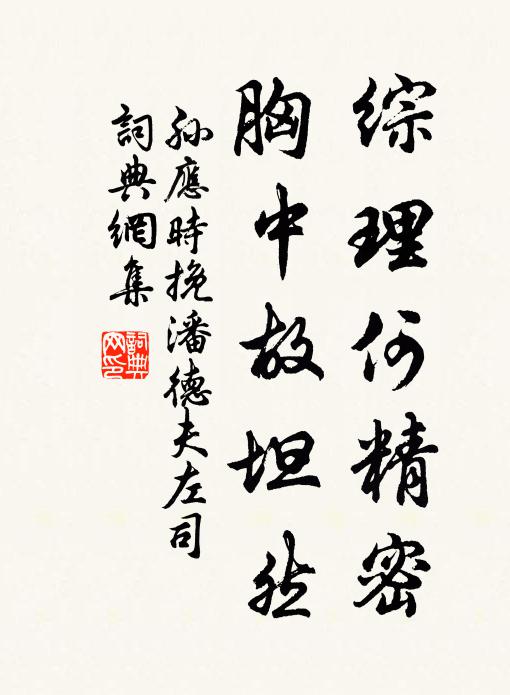 綜理何精密
胸中故坦然
孫應時挽潘德夫左司
詞典網集
詞典
网印